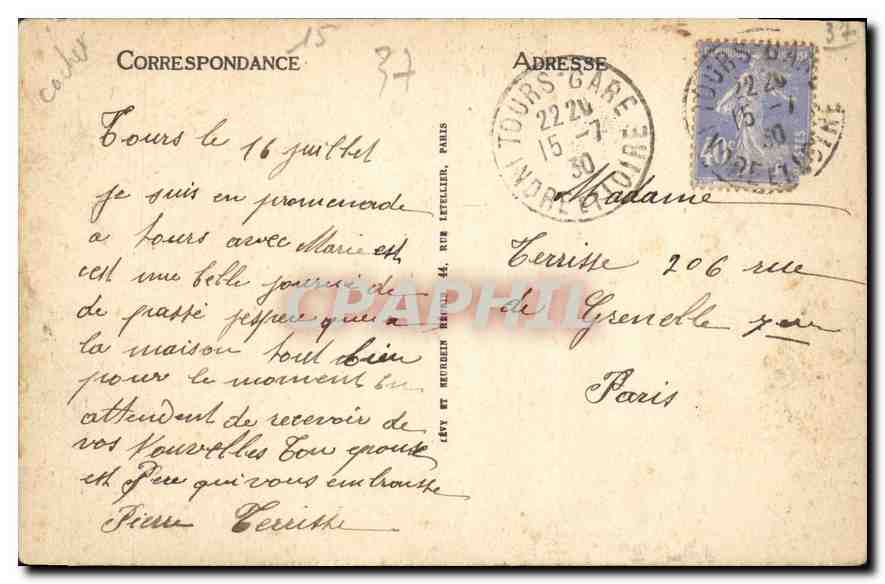 cocher
15
37
37
CORRESPONDANCE
ADRESSE
TOURS-GARE
22 20
15 -7
30
INDRE ET LOIRE
TOURS-GARE
22 20
15 -7
30
INDRE ET LOIRE
40c
Tours le 16 juillet
je suis en promenade
a tours avec Marie est
cest une belle journé de
de passé jespere que a
la maison tout bien
pour le moment en
attendent de recevoir de
vos Nouvelles Ton epoux
est Pere qui vous embrasse
Pierre Terrisse
LÉVY ET NEURDEIN RÉUNIS 44, RUE LETELLIER, PARIS
Madame
Terrisse 206 rue
de Grenelle 7me
Paris
CPAPHIL